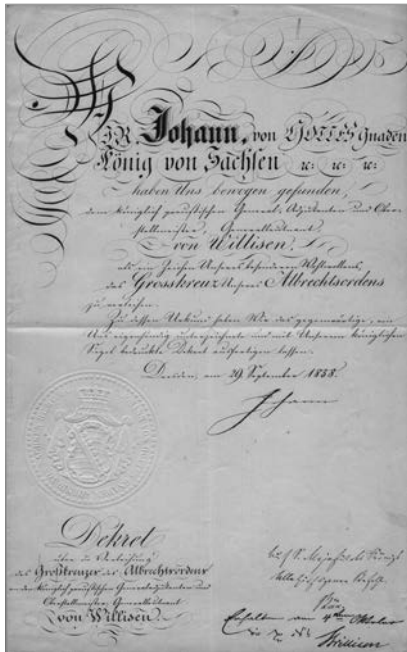 WIR Johann, von GOTTES Gnaden
König von Sachsen ꝛc: ꝛc: ꝛc:
haben Uns bewogen gefunden,
dem Königlich preußischen General-Adjudanten und Ober-
stallmeister, Generallieutenant,
von Willisen,
als ein Zeichen Unseres besonderen Wohlwollens,
das Grosskreuz Unseres Albrechtsordens
zu verleihen.
Zu dessen Urkund haben Wir das gegenwärtige, von
Uns eigenhändig unterzeichnete und mit Unserem Königlichen
Siegel bedruckte Dekret ausfertigen lassen.
Dresden, am 29. September 1858.
Johann
Dekret
über die Verleihung
des Großkreuzes des Albrechtsordens
an den Königlich preußischen Generaladjudanten und
Oberstallmeister, Generallieutenant
von Willisen.
Auf S. Majestät des Königs
Allerhöchsten Befehl.
Erhalten am 4ten Oktober
Willisen